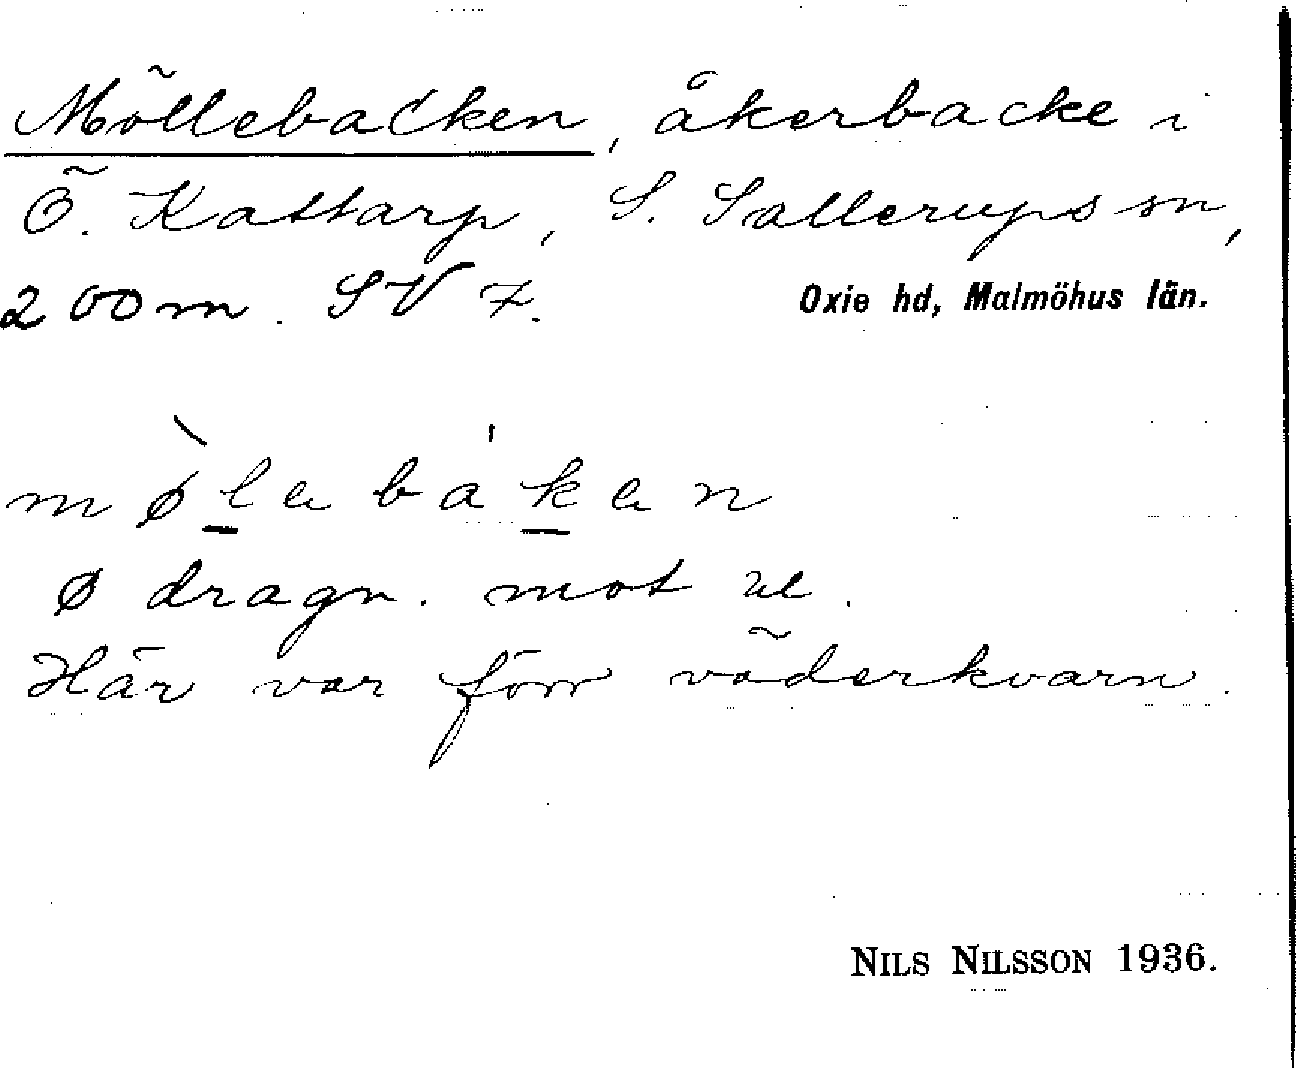 Möllebacken, åkerbacke i
Ö. Kattarp, S. Sallerups sn,
200 m. SV 7.
Oxie hd, Malmöhus län.
mø̀lebáken
ø dragn. mot œ.
Här var förr väderkvarn.
NILS NILSSON 1936.